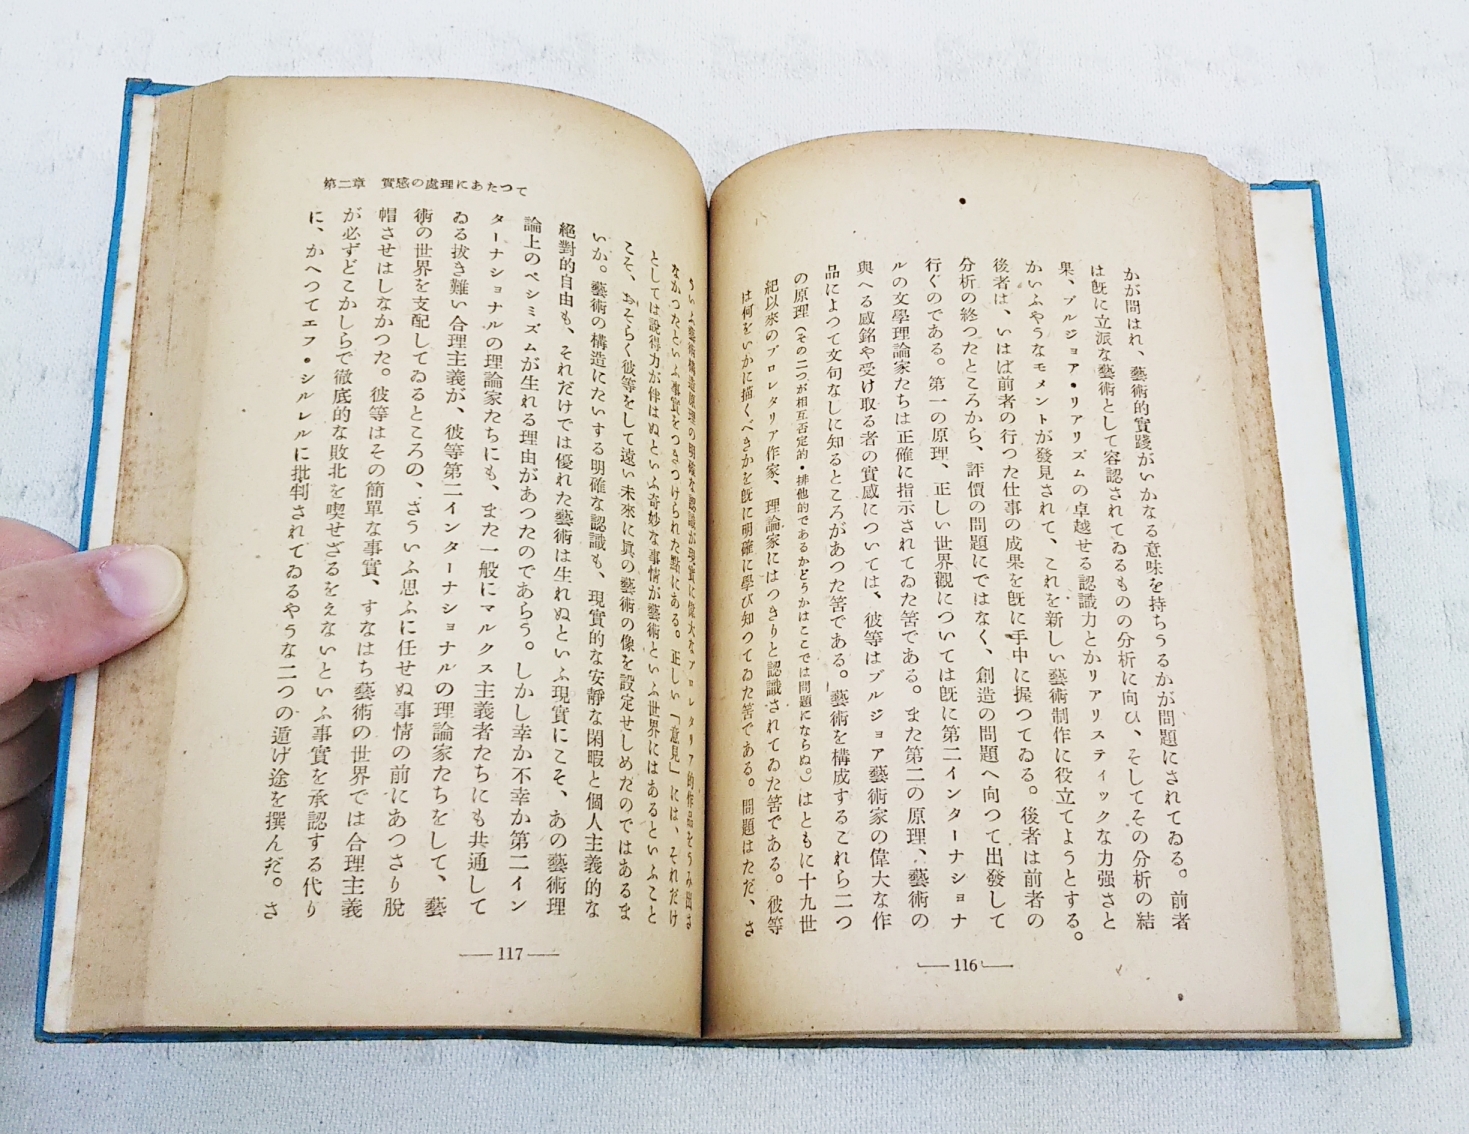 かが問はれ、藝術的實踐がいかなる意味を持ちうるかが問題にされてゐる。前者
は旣に立派な藝術として容認されてゐるものの分析に向ひ、そしてその分析の結
果、ブルジョア・リアリズムの卓越せる認識力とかリアリスティックな力强さと
かいふやうなモメントが發見されて、これを新しい藝術制作に役立てようとする。
後者は、いはば前者の行つた仕事の成果を旣に手中に握つてゐる。後者は前者の
分析の終つたところから、評價の問題にではなく、創造の問題へ向つて出發して
行くのである。第一の原理、正しい世界觀については旣に第二インターナショナ
ルの文學理論家たちは正確に指示されてゐた筈である。また第二の原理、藝術の
與へる感銘や受け取る者の實感については、彼等はブルジョア藝術家の偉大な作
品によつて文句なしに知るところがあつた筈である。藝術を構成するこれら二つ
の原理（その二つが相互否定的・排他的であるかどうかはここでは問題にならぬ。）はともに十九世
紀以來のプロレタリア作家、理論家にはつきりと認識されてゐた筈である。彼等
は何をいかに描くべきかを旣に明確に學び知つてゐた筈である。問題はただ、さ
116
第二章　實感の處理にあたつて
ういふ藝術構造原理の明確な認識が現實に偉大なプロレタリア的作品をうみ出さ
なかつたといふ事實をつきつけられた點にある。正しい「意見」には、それだけ
としては說得力が伴はぬといふ奇妙な事情が藝術といふ世界にはあるといふこと
こそ、おそらく彼等をして遠い未來に眞の藝術の像を設定せしめたのではあるま
いか。藝術の構造にたいする明確な認識も、現實的な安靜な閑暇と個人主義的な
絕對的自由も、それだけでは優れた藝術は生れぬといふ現實にこそ、あの藝術理
論上のペシミズムが生れる理由があつたのであらう。しかし幸か不幸か第二イン
ターナショナルの理論家たちにも、また一般にマルクス主義者たちにも共通して
ゐる拔き難い合理主義が、彼等第二インターナショナルの理論家たちをして、藝
術の世界を支配してゐるところの、さういふ思ふに任せぬ事情の前にあつさり脫
帽させはしなかつた。彼等はその簡單な事實、すなはち藝術の世界では合理主義
が必ずどこかしらで徹底的な敗北を喫せざるをえないといふ事實を承認する代り
に、かへつてエフ・シルレルに批判されてゐるやうな二つの遁げ途を撰んだ。さ
117